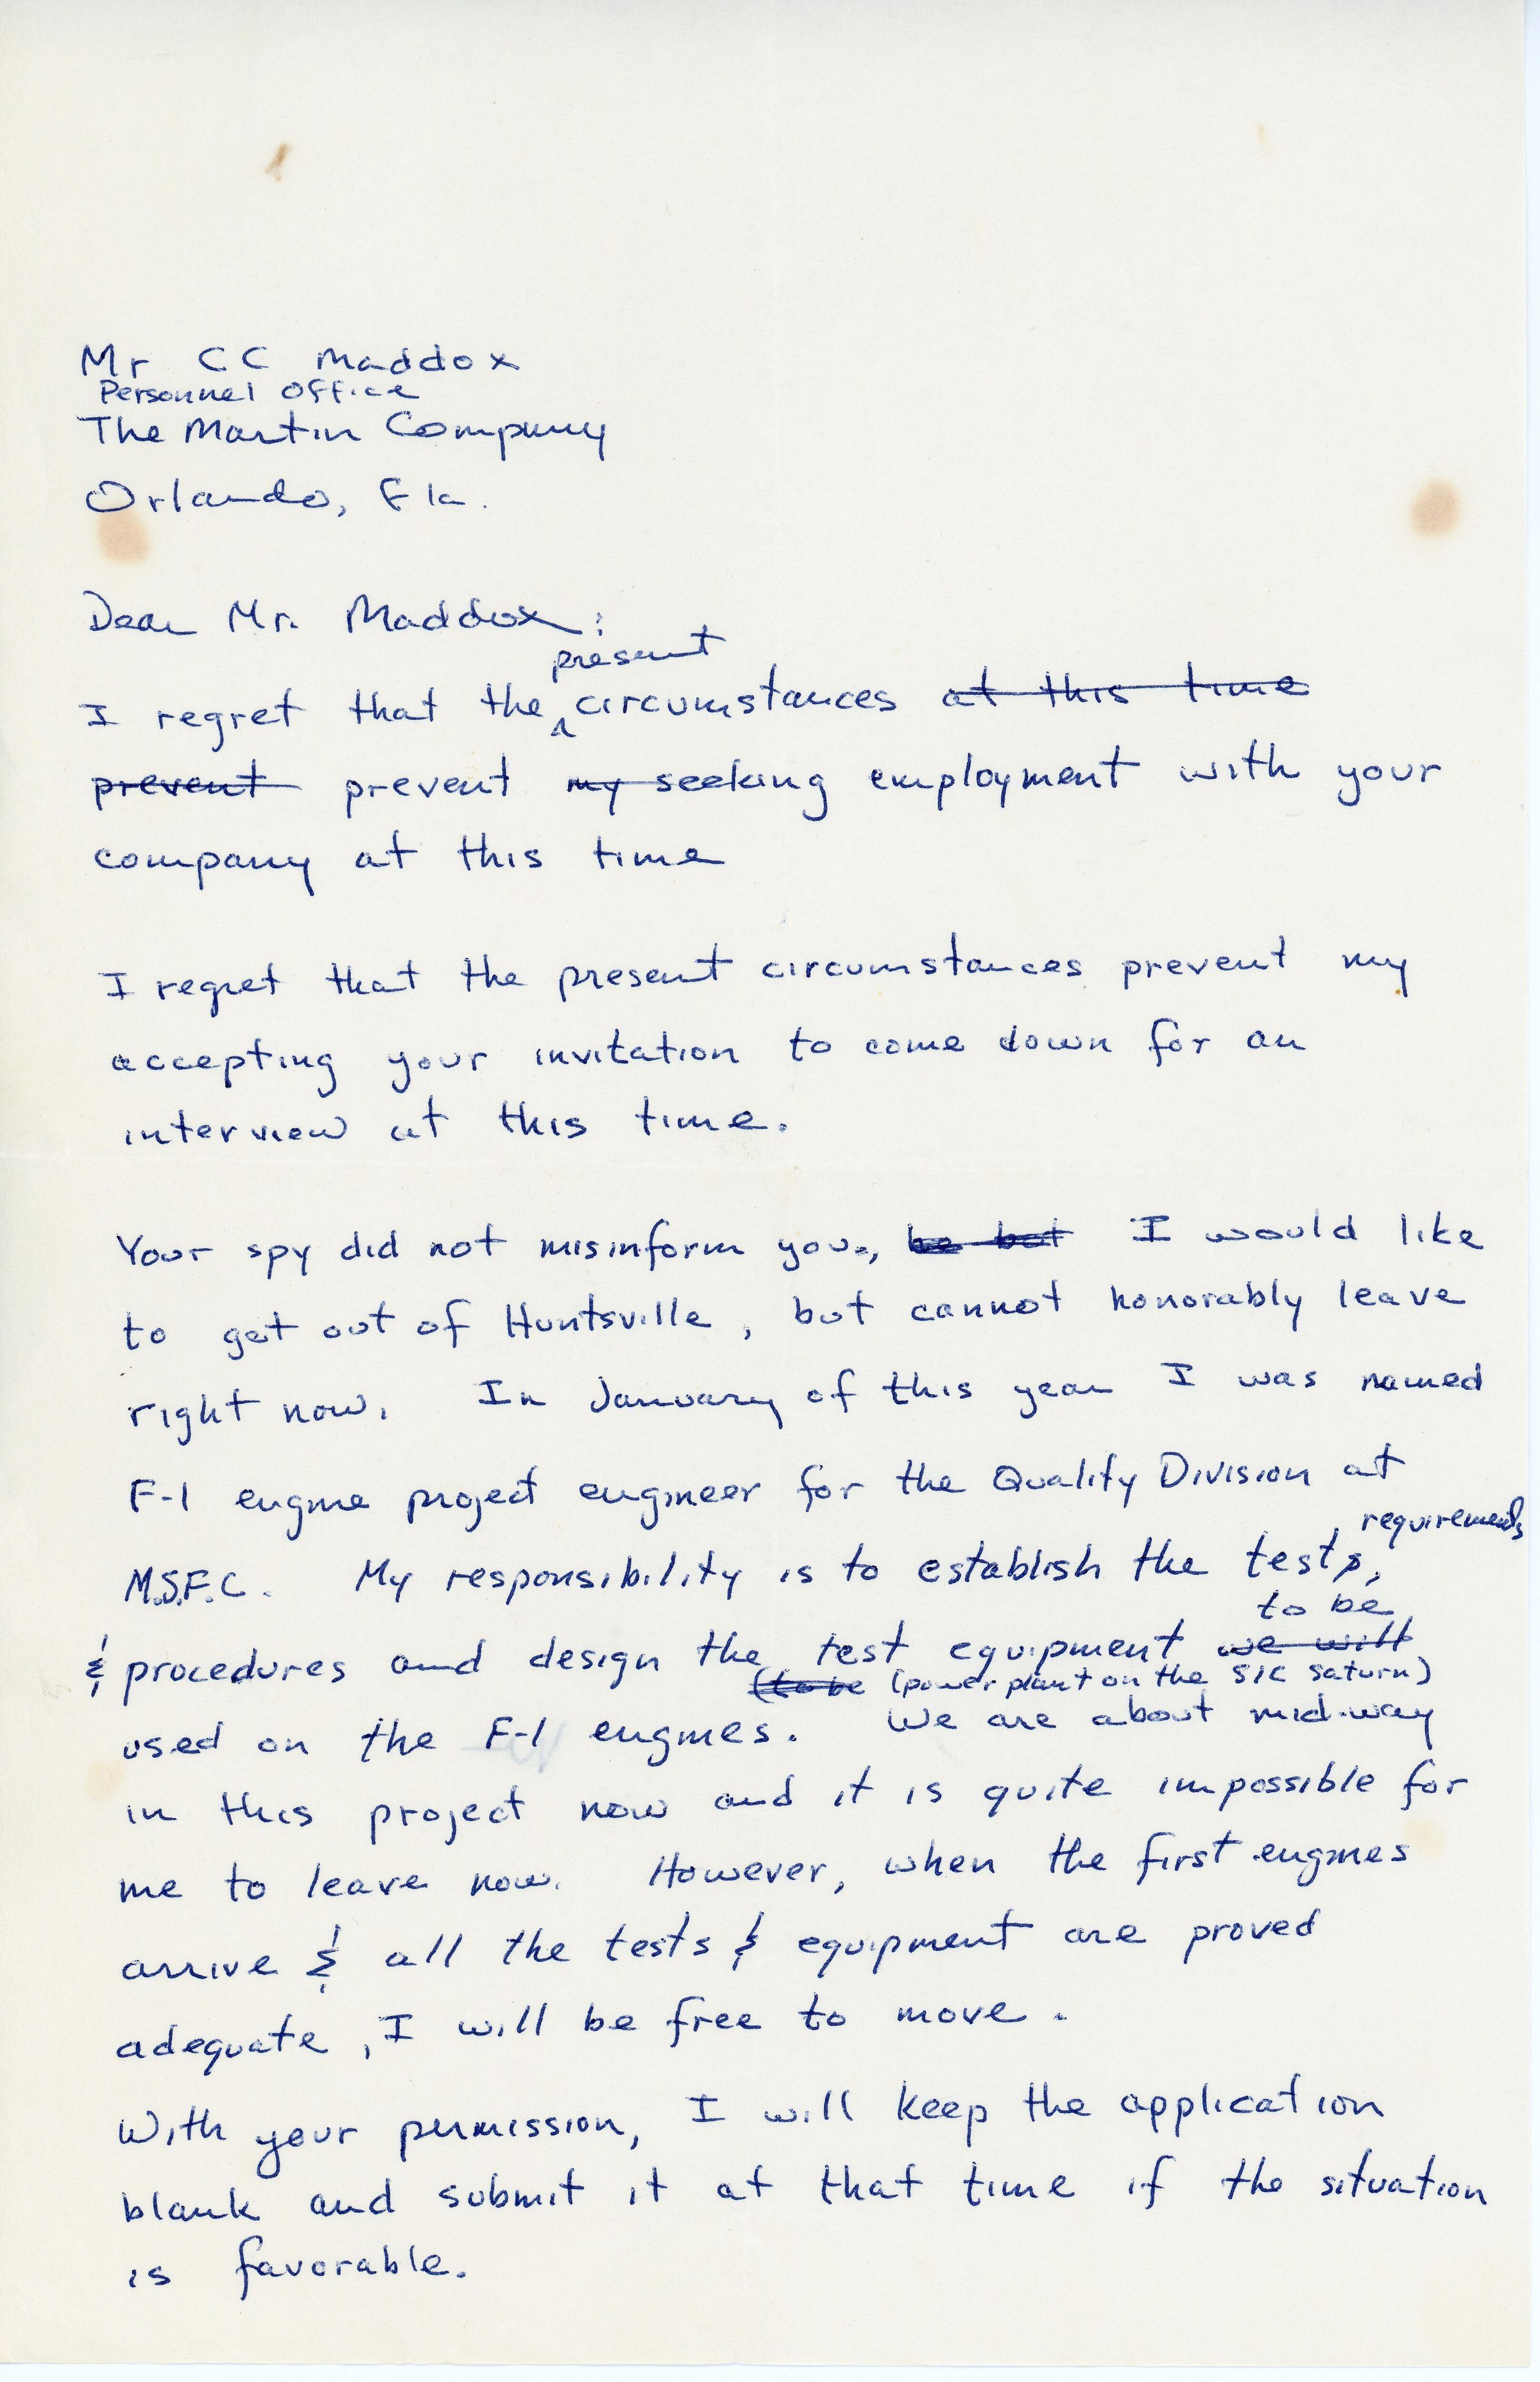 Mr CC Maddox
Personnel Office
The Martin Company
Orlando, Fla.
Dear Mr. Maddox:
present
I regret that the circumstances at this time
prevent prevent my seeking employment with your
company at this time
I regret that the present circumstances prevent my
accepting your invitation to come down for an
interview at this time.
Your spy did not misinform you, be but I would like
to get out of Huntsville, but cannot honorably leave
right now. In January of this year I was named
F-1 engine project engineer for the Quality Division at
requirements
M.S.F.C. My responsibility is to establish the tests,
to be
& procedures and design the test equipment we will
(to be (power plant on the S1C Saturn)
used on the F-1 engines. We are about mid-way
in this project now and it is quite impossible for
me to leave now. However, when the first engines
arrive & all the tests & equipment are proved
adequate, I will be free to move.
With your permission, I will keep the application
blank and submit it at that time if the situation
is favorable.